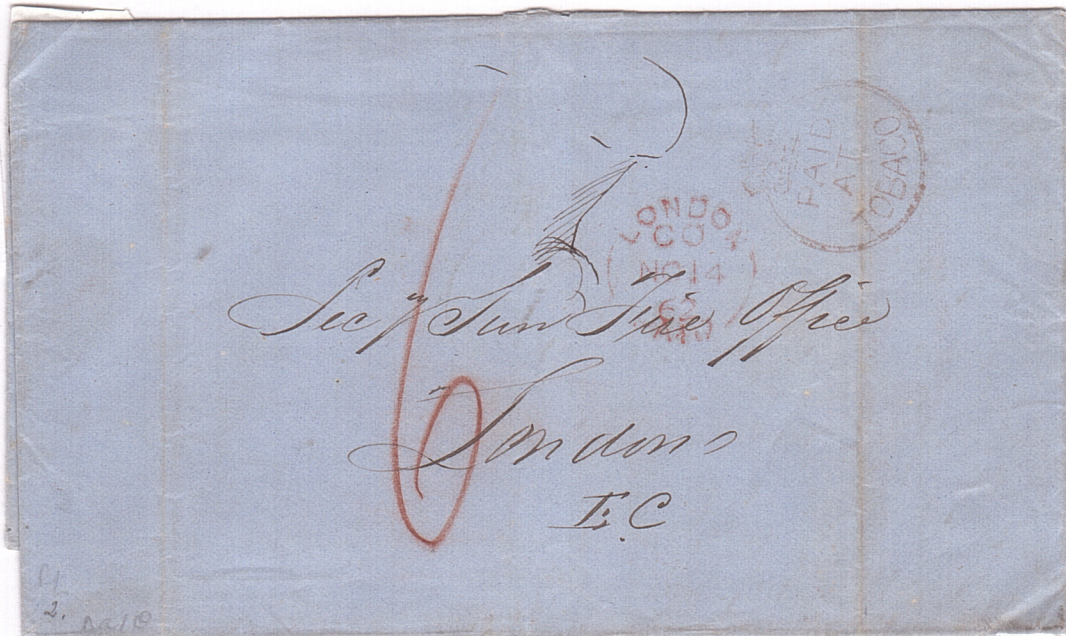 PAID
AT
TOBACO
LONDON
CO
NO 14
65
PAID
6
Sec.y Sun Fire Office
London
E.C
2.